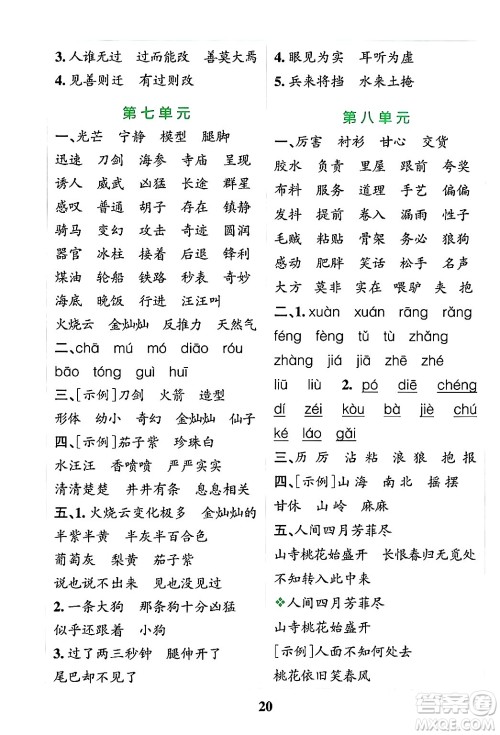 3.人谁无过　过而能改　善莫大焉
4.见善则迁　有过则改
第七单元
一、光芒　宁静　模型　腿脚
迅速　刀剑　海参　寺庙　呈现
诱人　威武　凶猛　长途　群星
感叹　普通　胡子　存在　镇静
骑马　变幻　功攻　安装　幻影
器官　冰柱　接着　后退　锋利
煤油　轮船　铁路　秒表　奇妙
海底　晚饭　行进　汪汪叫
火烧云　金灿灿　反推力　天然气
二、chā　mú　mó　diāo　róu
bāo　tóng　guì　huī
三、[示例]刀剑　火箭　造型
形体　幼小　奇幻　金灿灿　仙子
四、[示例]茄子紫　珍珠白
水汪汪　香喷喷　严严实实
清清楚楚　井井有条　息息相关
五、1.火烧云变化极多　金灿灿的
半紫半黄　半灰半百合色
葡萄灰　梨黄　茄子紫
说也说不出来　见也没见过
2.一条大狗　那条十分凶猛
似乎还在等着　小狗
3.过了两三秒钟　腿伸开了
尾巴却不见了
2.眼见为实　耳听为虚
5.兵来将挡　水来土掩
第八单元
一、厉害　衬衫　甘心　交货
胶水　负责　里屋　跟前　夸奖
布料　服务　道理　手艺　偏偏
发抖　提前　歪着　漏雨　性子
毛贼　粘贴　骨架　务必　狼狗
感动　肥胖　笑话　松手　名录
大方　莫非　实在　喂驴　夹抱
二、1.xuàn　xuán　rāng　rǎng
féng　fèng　tǔ　tù　zhǎn
zhàng　jiá　jià　jiā　fà　fā
liū　liù　2.pó　diē　chéng
dīng　zhí　bān　jiè　shú
ké　láo　gǎi
三、历　厉　沾　粘　浪　狼　抱　报
四、[示例]山海　南北　摇摆
甘休　山岭　麻麻
五、人间四月芳菲尽
山寺桃花始盛开　长恨春归无觅处
不知转入此中来
人间四月芳菲尽
山寺桃花始盛开
[示例]人面不知何处去
桃花依旧笑春风
20